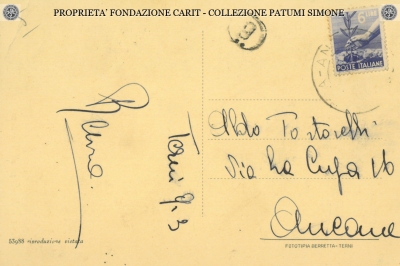 PROPRIETA' FONDAZIONE CARIT - COLLEZIONE PATUMI SIMONE
POSTE ITALIANE
Terni 9/3
Aldo Tortorelli
Via La Cupa 16
Ancona
riproduzione vietata
FOTOTIPIA-BERRETTA-TERNI